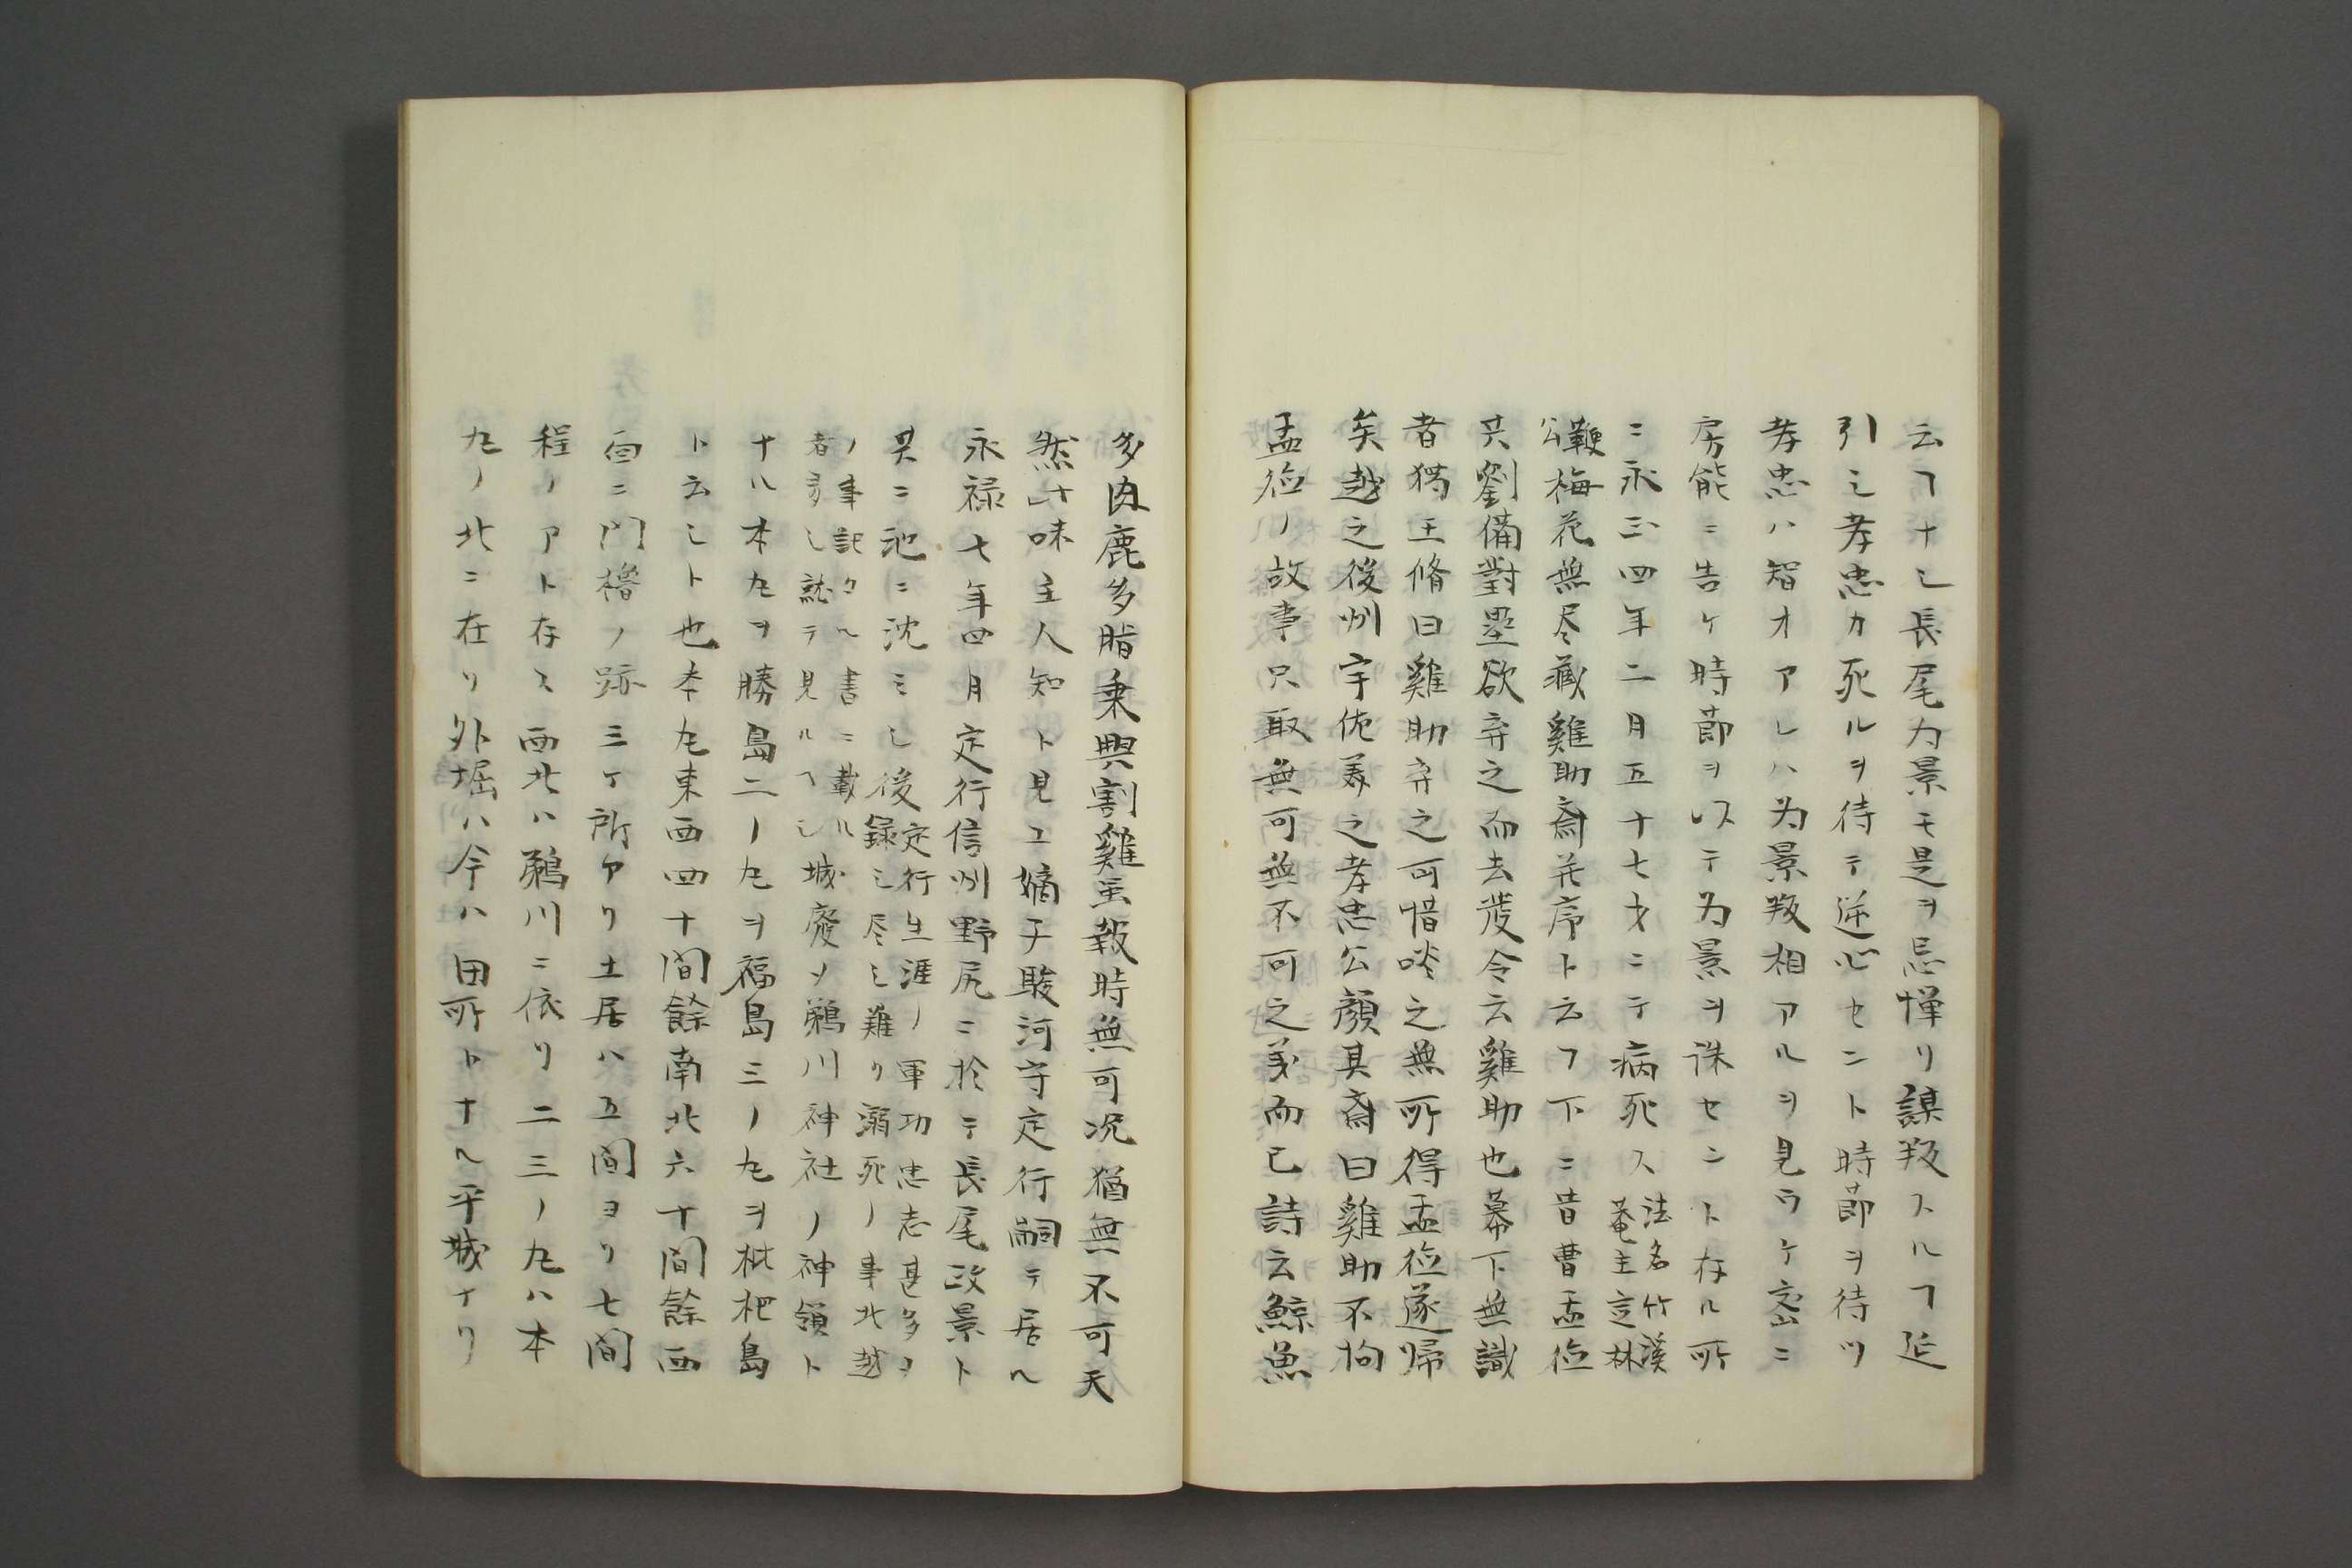 云フナシ長尾為景モ是ヲ忌憚リ謀叛スルフ延
引シ孝忠カ死ルヲ待テ逆心セント時節ヲ待ツ
孝忠ハ智オアレハ為景叛相アルヲ見ウケ密ニ
房能ニ告ケ時節ヲ以テ為景ヲ誅セント存ル所
ニ永正四年二月五十七才ニテ病死ス
法名竹渓
菴主立林
公鞭梅花無尽蔵雞助斎并序ト云フ下ニ昔曹孟徳
共劉備對塁欲弃之而去發令云雞助也幕下無識
者獨王脩曰雞助弃之可惜啖之無所得孟徳遂帰
矣越之後州宇佐美之孝忠公顔其斎曰雞助不拘
孟徳ノ故事只取無可無不可之義而已詩云鯨魚
多肉鹿多脂秉興割雞至報時無可況猶無不可天
然一味主人知ト見エ嫡子駿河守定行嗣テ居ヘ
永禄七年四月定行信州野尻ニ於テ長尾政景ト
具ニ池ニ沈ミシ後
定行生涯ノ軍功忠志甚多ク
録シ尽シ難ク溺死ノ事北越
ノ事記タル書ニ載ル
者多シ就テ見ルヘシ
城廢ソ鵜川神社ノ神領ト
ナル本丸ヲ勝島二ノ丸ヲ福島三ノ丸ヲ枇杷島
ト云シト也本丸東西四十間餘南北六十間餘西
面ニ門櫓ノ跡三ケ所アリ土居ハ五間ヨリ七間
程ノアト存ス西北ハ鵜川ニ依リ二三ノ丸ハ本
丸ノ北ニ在リ外堀ハ今ハ田所トナヘ平城ナリ